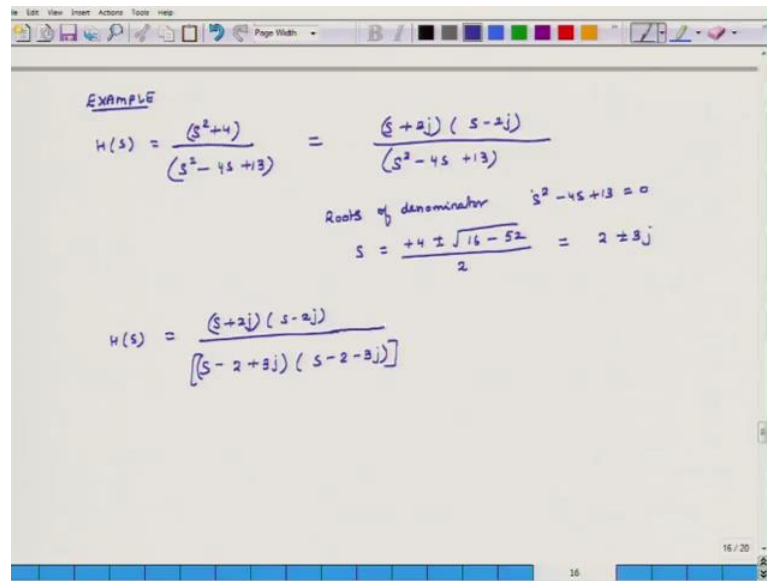 le Edit View Insert Actions Tools Help
Page Width B I
EXAMPLE
H(s) = (s²+4) / (s² - 4s + 13) = (s + 2j) (s - 2j) / (s² - 4s + 13)
Roots of denominator s² - 4s + 13 = 0
s = +4 ± √16 - 52 / 2 = 2 ± 3j
H(s) = (s+2j) (s-2j) / [(s - 2 + 3j) (s - 2 - 3j)]
16 / 20
16